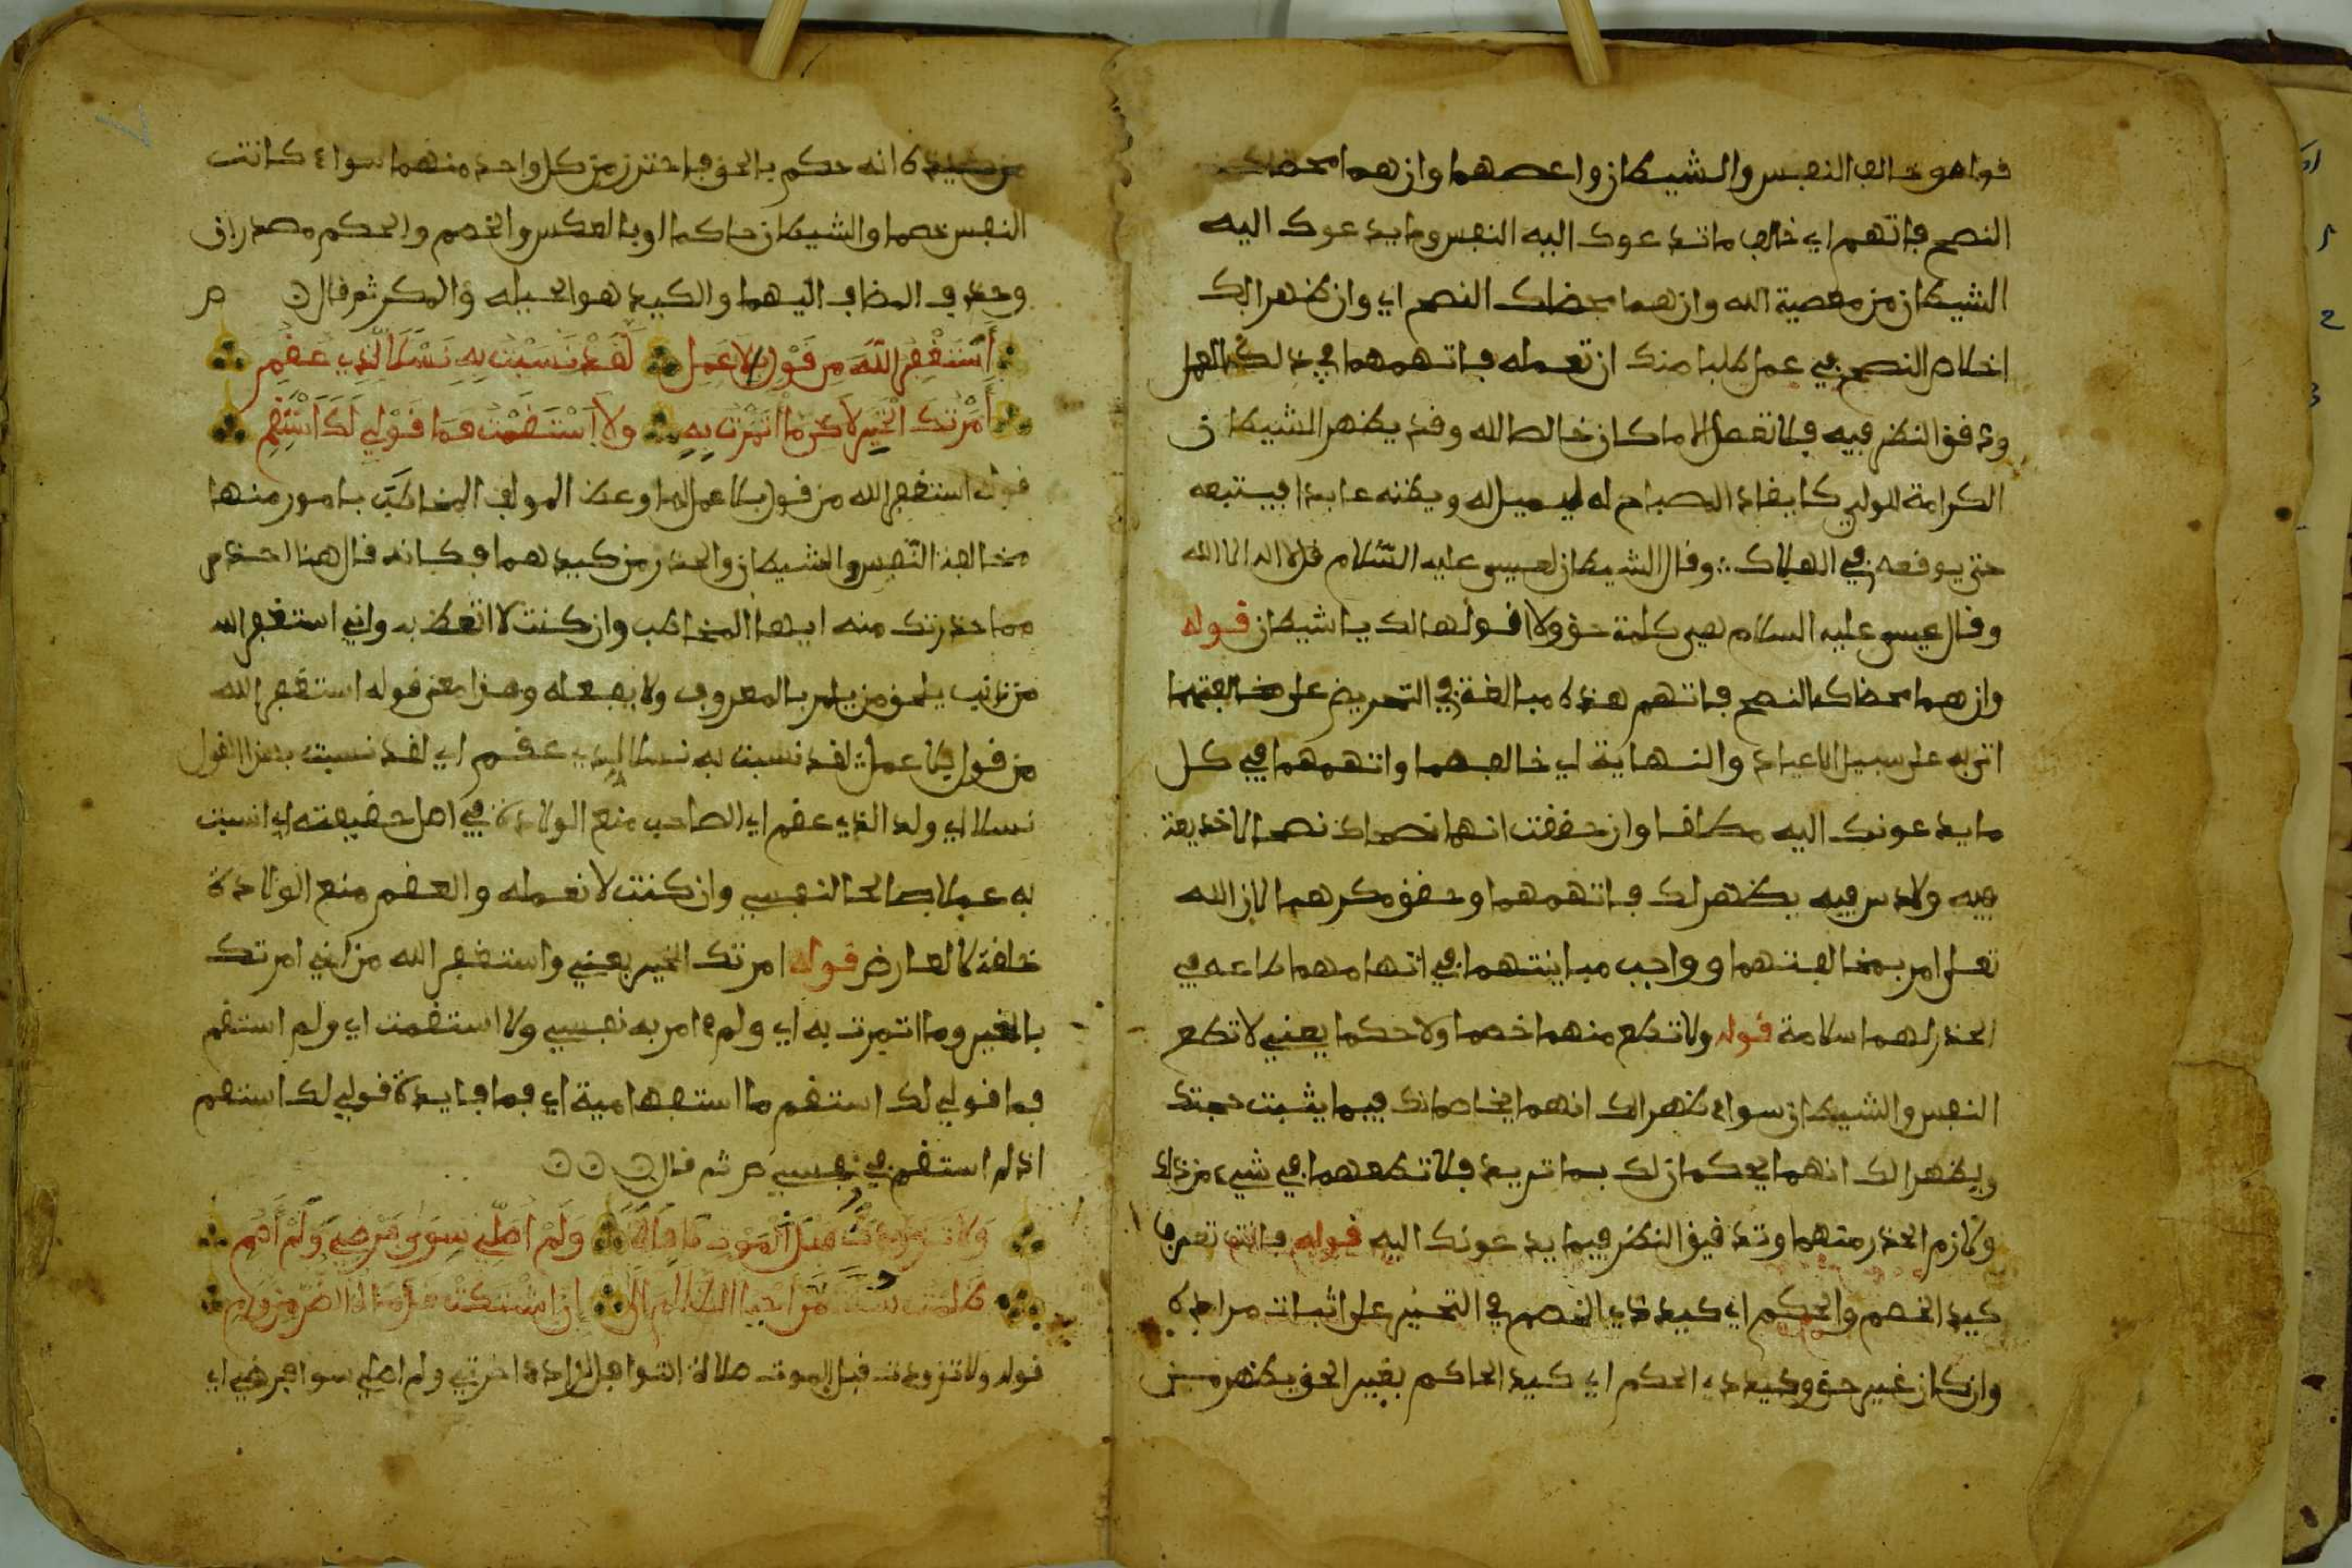 قوله وخالف النفس والشيطان واعصهما وان هما محضاك
النصح فاتهم اي خالف ما تدعوك اليه النفس وما يدعوك اليه
الشيطان من معصية الله وان هما محضاك النصح اي وان ظهر الك
اخلاص النصح في عمل طلبا منك ان تعمله فاتهمهما في ذلك العمل
ودقق النظر فيه فلا تفعل الا ما كان خالصا لله وقد يظهر الشيطان
الكرامة للولي كايقاد المصباح له ليميل له ويظنه عابدا فيستبعه
حتى يوقعه في الهلاك ∴ وقال الشيطان لعيسى عليه السلام قل لا اله الا الله
وقال عيسى عليه السلام هي كلمة حق ولا اقولها لك يا شيطان قوله
وان هما محضاك النصح فاتهم هذه مبالغة في التحريض على مخالفتهما
اتى به على سبيل الاعياد والنهاية اي خالفهما واتهمهما في كل
ما يدعونك اليه مطلقا وان حققت انهما نصحاك نصحا لا خديعة
فيه ولا دس فيه يظهر لك فاتهمهما وحقق مكرهما لان الله
تعلى امر بمخالفتهما وواجب مباينتهما في اتهامهما طاعه في
الحذر لهما سلامة قوله ولا تطع منهما خصما ولا حكما يعني لا تطع
النفس والشيطان سواء ظهر الك انهما يخاصمانك فيما يثبت حجتك
ويظهر الك انهما يحكمان لك بما تريد فلا تطعهما في شيء من ذلك
ولازم الحذر منهما وتدقيق النظر فيما يدعونك اليه قوله فانت تعرف
كيد الخصم والحكم اي كيد ذي الخصم في التحيز على اثبات مراده
وان كان غير حق وكيد ذي الحكم اي كيد الحاكم بغير الحق يظهر من
من كيده كانه حكم بالحق فاحترز من كل واحد منهما سواء كانت
النفس خصما والشيطان حاكما او بالعكس والخصم والحكم مصدران
وحذف المضاف اليهما والكيد هو الحيلة والمكر ثم قال ن ص
أَسْتَغْفِرُ اللَّهَ مِن قَوْلٍ بِلَا عَمَلٍ لَقَدْ نَسَبْتُ بِهِ نَسْلًا لِذِي عُقُمِ
أَمَرْتُكَ الْخَيْرَ لَاكِن مَا ائْتَمَرْتُ بِهِ وَلَا اسْتَقَمْتُ فَمَا قَوْلِي لَكَ اسْتَقِمِ
قوله استغفر الله من قول بلا عمل لما وعظ المولف المخاطب بامور منها
مخالفة النفس والشيطان والحذر من كيدهما فكانه قال هنا احذر
مما حذرتك منه ايها المخاطب وان كنت لا اتعظ به واني استغفر الله
من ذنب يلحق من يامر بالمعروف ولا يفعله وهذا معنى قوله استغفر الله
من قول بلا عمل ∴ لقد نسبت به نسلا لذي عقم اي لقد نسبت بهذا القول
نسلا اي ولد الذي عقم اي الصاحب منع الولادة في اصل حقيقته اي انسبت
به عملا صالحا لنفسي وان كنت لا نعمله والعقم منع الولادة
خلقة لا لعارض قوله امرتك الخير يعني واستغفر الله من اني امرتك
بالخير وما ائتمرت به اي ولم امر به نفسي ولا استقمت اي ولم استقم
فما قولي لك استقم ما استفهامية اي فما فايدة قولي لك استقم
اذ لم استقم في نفسي ص ثم قال ن ن ن
وَلَا تَزَوَّدْتُ قَبْلَ الْمَوْتِ نَافِلَةً وَلَمْ أُصَلِّي سِوَى فَرْضٍ وَلَمْ أَصُمِ
ظَلَمْتُ سُنَّةَ مَنْ أَحْيَا الظَّلَامَ إِلَى إِنِ اشْتَكَتْ قَدَمَاهُ الضُّرَّ مِن وَرَمِ
قوله ولا تزودت قبل الموت صلاة النوافل لزاده اخرتي ولم اصلي سوا فرضي اي